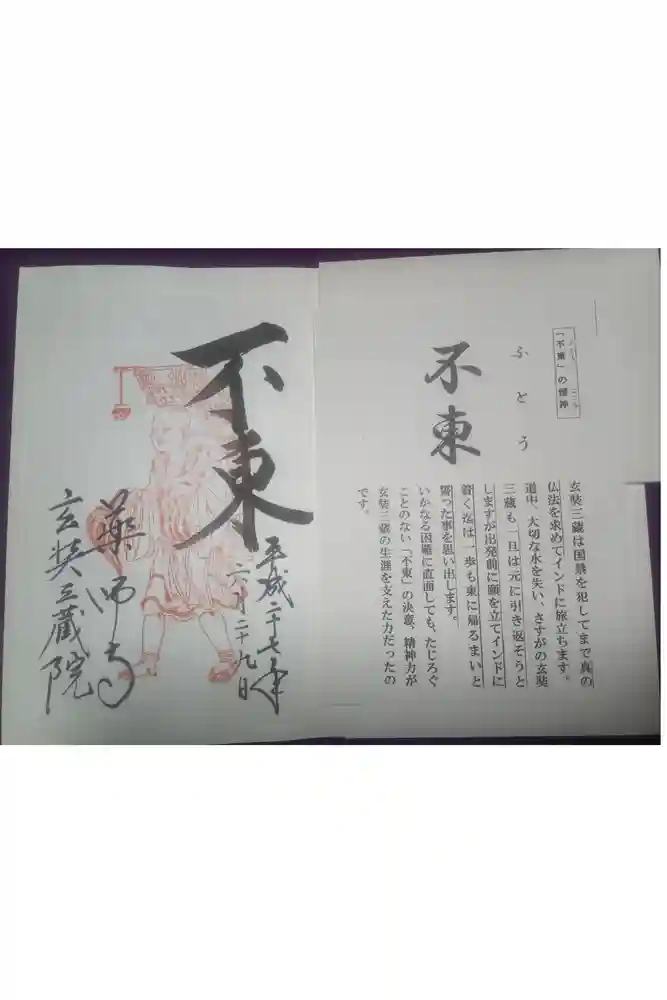 「不東」の精神
ふとう
不東
玄奘三蔵は国禁を犯してまで真の
仏法を求めてインドに旅立ちます。
道中、大切な水を失い、さすがの玄奘
三蔵も一旦は元に引き返そうと
しますが出発前に願を立てインドに
着く迄は一歩も東に帰るまいと
誓った事を思い出します。
いかなる困難に直面しても、たじろぐ
ことのない「不東」の決意、精神力が
玄奘三蔵の生涯を支えた力だったの
です。
平成二十七年
六月二十九日
不東
藥師寺
玄奘三蔵院